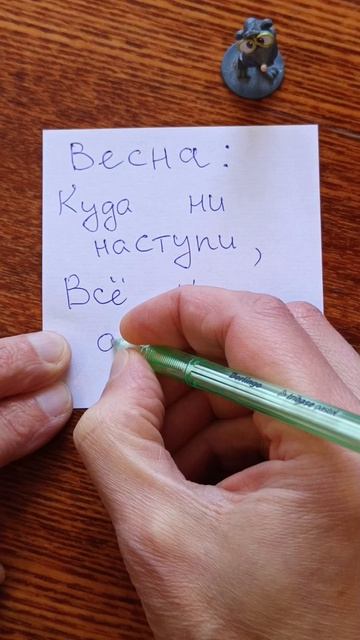 Весна:
Куда ни
наступи,
Всё
Berlingo